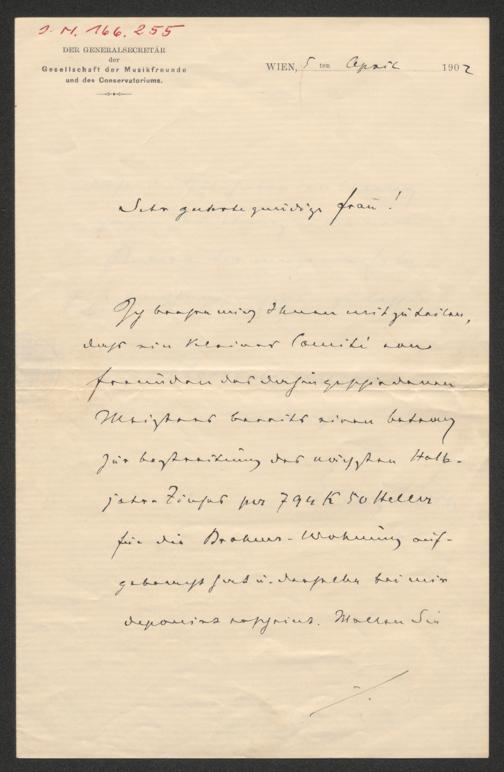 J. N. 166.255
DER GENERALSECRETÄR
der
Gesellschaft der Musikfreunde
und des Conservatoriums.
WIEN, 5 ten April 1902
Sehr geehrte gnädige Frau!
Ich beehre mich Ihnen mitzuteilen,
dass ein kleines Comité von
Freunden des dahingeschiedenen
Meisters bereits einen Betrag
zur Bestreitung des nächsten Halb-
jahrs-Zinses per 794 K 50 Heller
für die Brahms-Wohnung auf-
gebracht hat u. derselbe bei mir
deponirt erscheint. Wollen Sie
./.